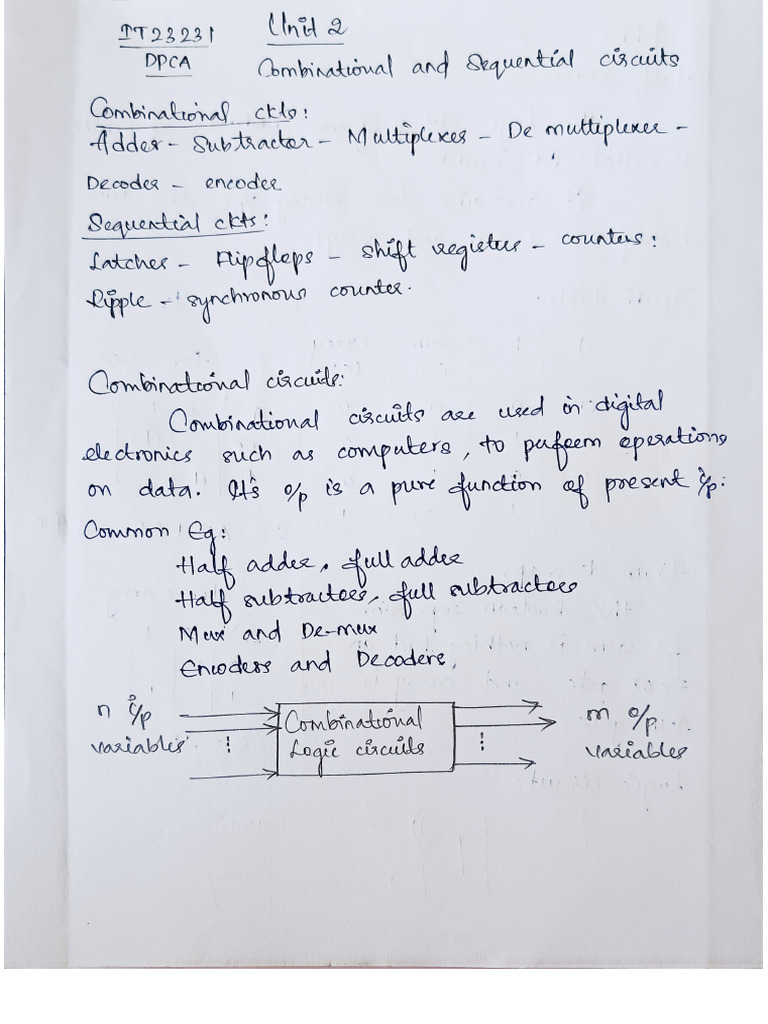 IT23231 Unit 2
DPCA Combinational and Sequential circuits
Combinational ckts:
Adder - Subtractor - Multiplexer - De multiplexer -
Decoder - encoder
Sequential ckts:
Latches - Flipflops - shift register - counters:
Ripple - synchronous counter.
Combinational circuits:
Combinational circuits are used in digital
electronics such as computers, to perform operations
on data. It's o/p is a pure function of present i/p.
Common Eg:
Half adder, full adder
Half subtractor, full subtractor
Mux and De-mux
Encoders and Decoders.
n i/p variables
Combinational Logic circuits
m o/p variables